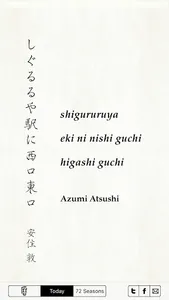 しぐるるや駅に西口東口
安住敦
shigururuya
eki ni nishi guchi
higashi guchi
Azumi Atsushi
Today
72 Seasons